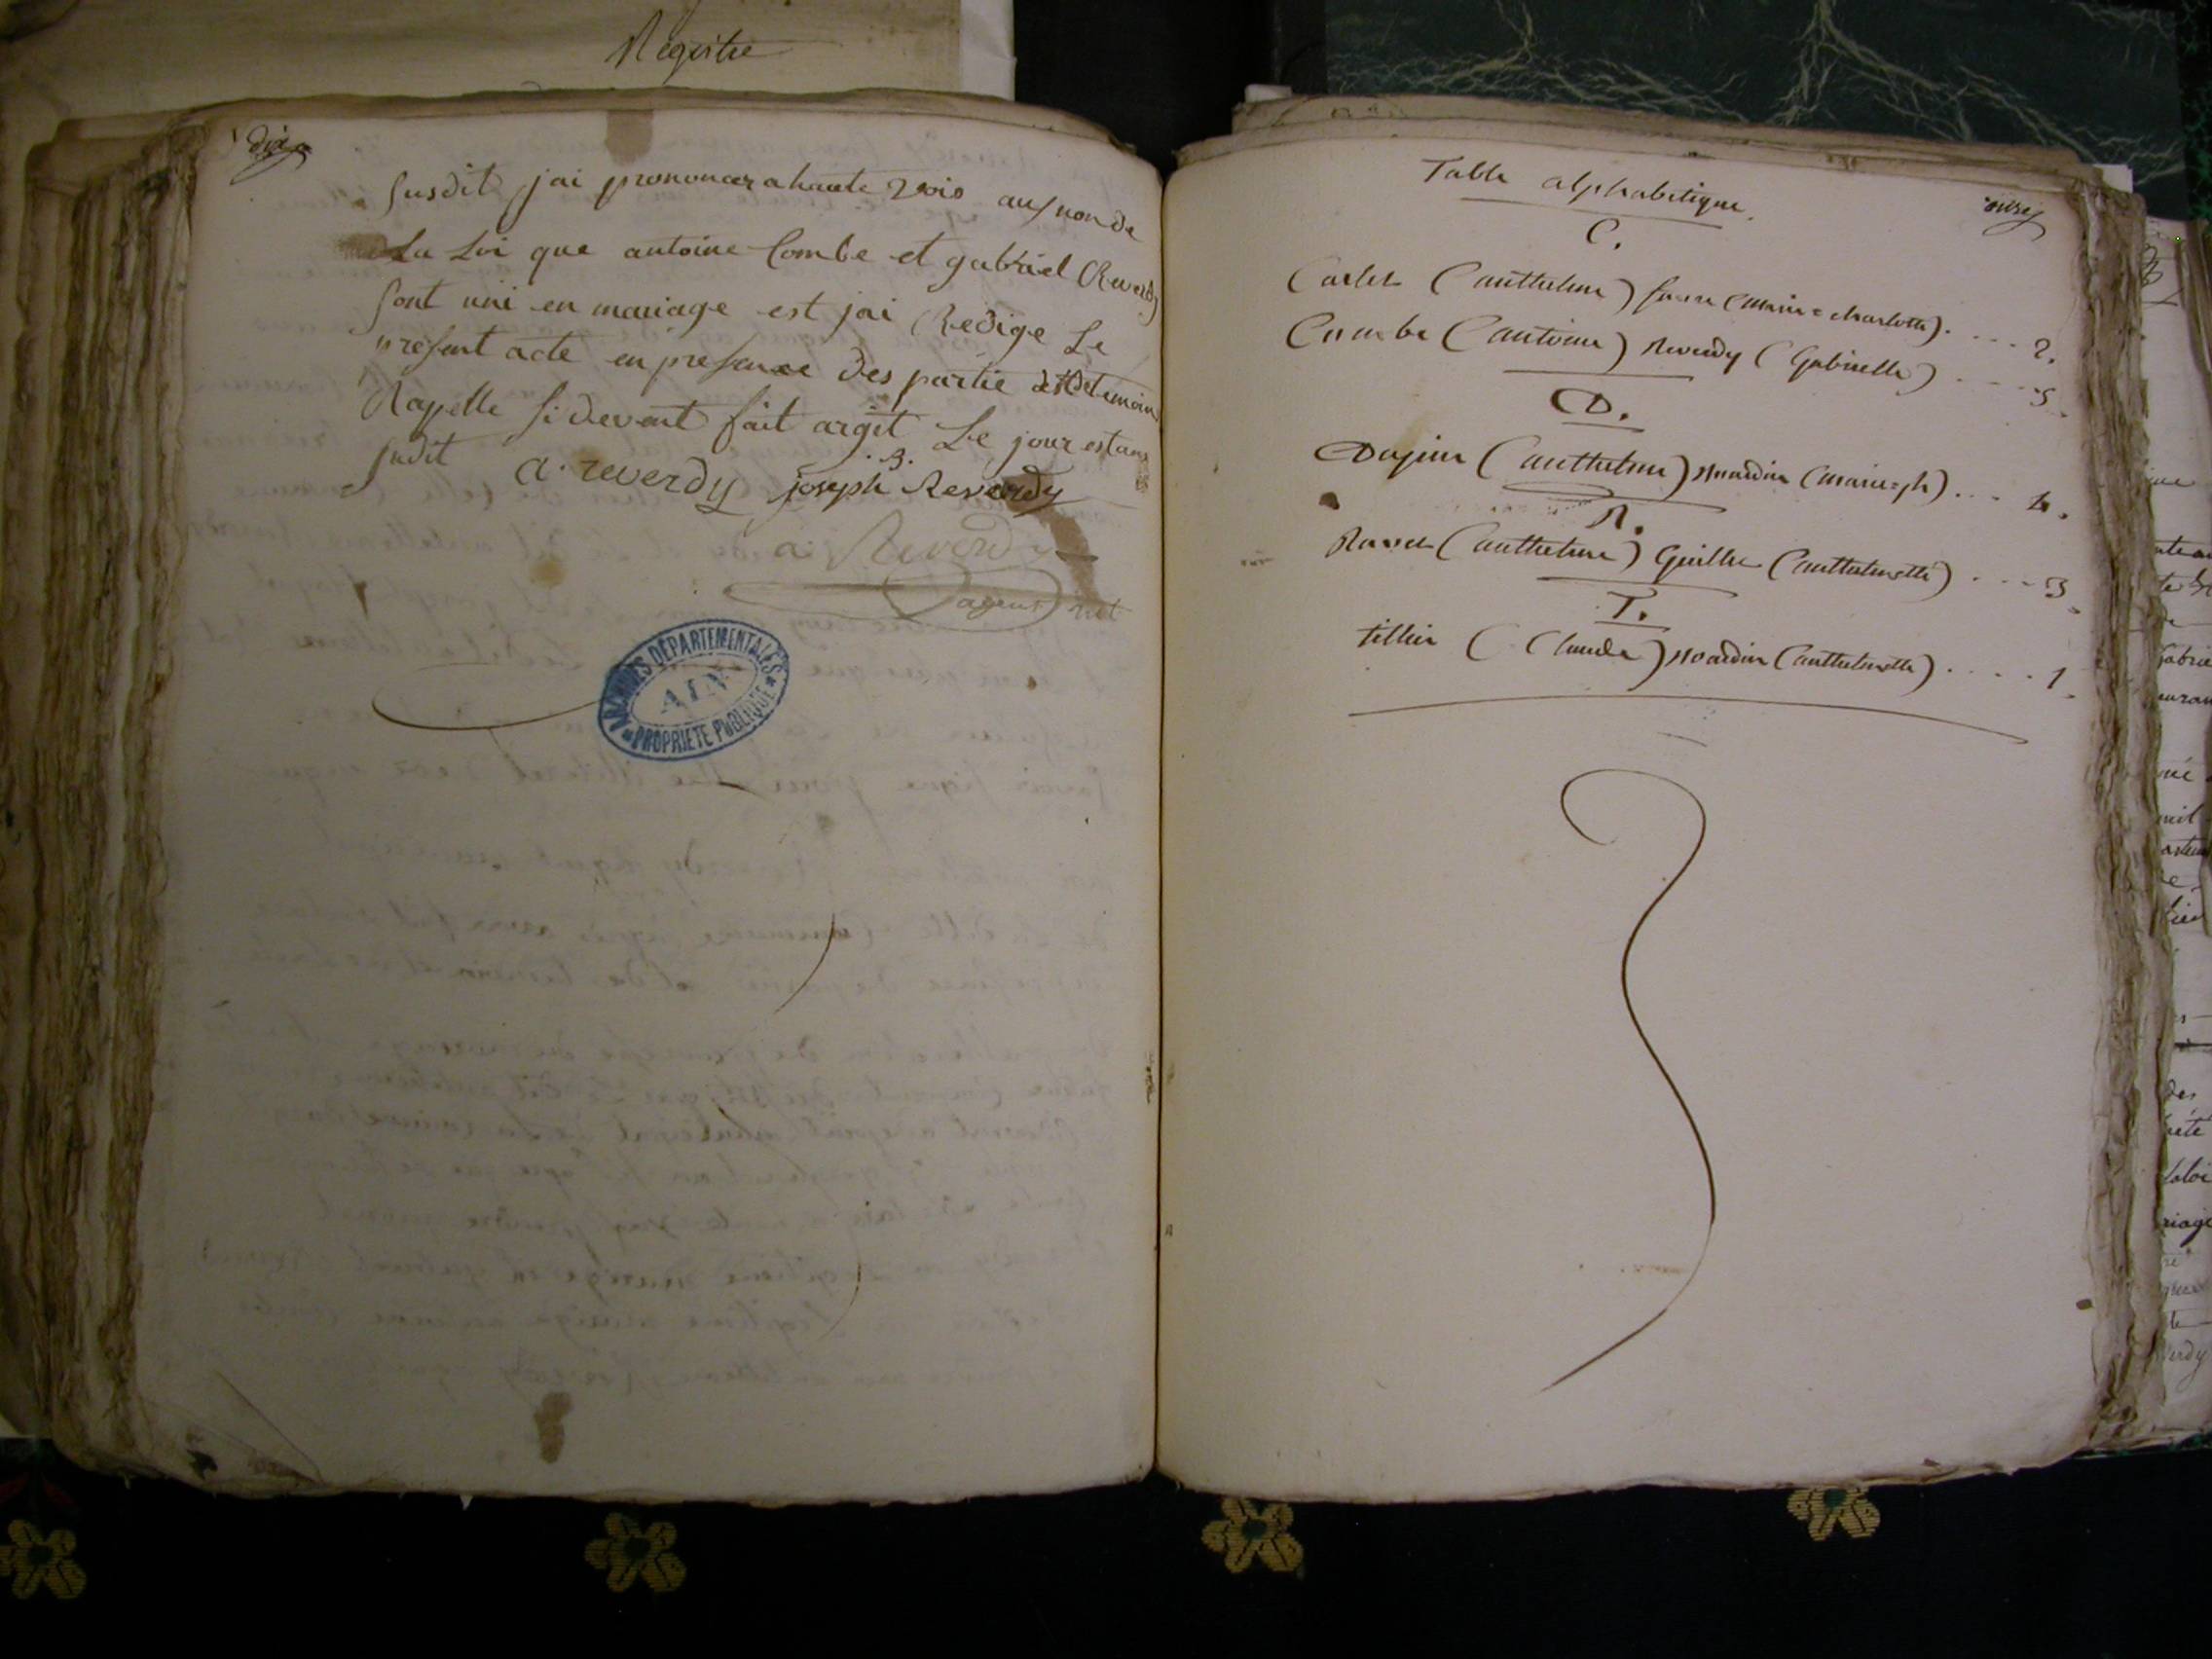 Registre
dix
Susdit jai prononcer a haute vois au non de
La Loi que antoine Combe et gabriel Reverdy
sont uni en mariage est jai Redige Le
present acte en presence des partie et temoin
Rapelle si devant fait argit Le jour est an
sudit a. reverdy joseph Reverdy
a. Reverdy
agent
ARCHIVES DÉPARTEMENTALES
AIN
PROPRIÉTÉ PUBLIQUE
Table alphabetique
onze
C.
Carlet (anthelme) favre (marie=charlotte). .... 2.
Combe (antoine) Reverdy (Gabrielle) .... 5.
D.
Dujeur (anthelme) (marie=ph) .... 4.
R.
Ravet (anthelme) Guille (anthelmette) .... 3.
T.
tillier (Claude) (anthelmette) .... 1.